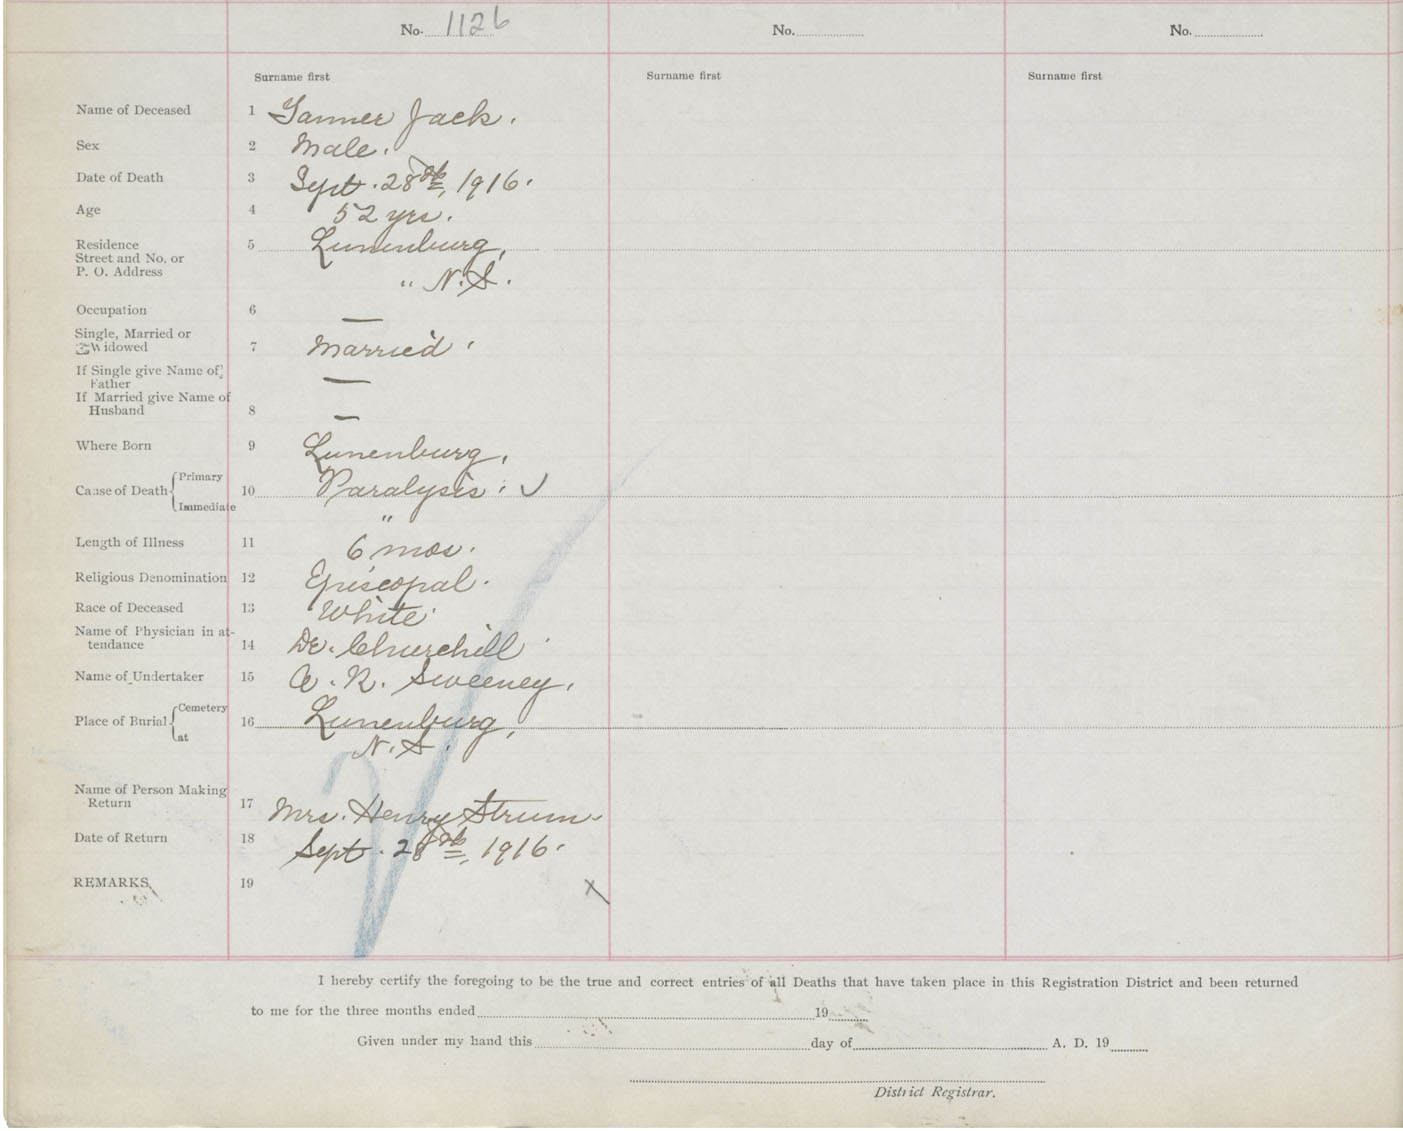 No. 1126 No. No.
Surname first Surname first Surname first
Name of Deceased 1 Tanner Jack.
Sex 2 Male.
Date of Death 3 Sept. 28th, 1916.
Age 4 52 yrs.
Residence 5 Lunenburg,
Street and No. or
P. O. Address " N.S.
Occupation 6 —
Single, Married or
Widowed 7 Married.
If Single give Name of
Father —
If Married give Name of
Husband 8 —
Where Born 9 Lunenburg,
Cause of Death Primary 10 Paralysis. ✓
Immediate "
Length of Illness 11 6 mos.
Religious Denomination 12 Episcopal.
Race of Deceased 13 White.
Name of Physician in at-
tendance 14 Dr. Churchill
Name of Undertaker 15 A. R. Sweeney,
Place of Burial Cemetery 16 Lunenburg,
at N.S.
Name of Person Making
Return 17 Mrs. Henry Strum.
Date of Return 18 Sept. 28th, 1916.
REMARKS, 19 x
I hereby certify the foregoing to be the true and correct entries of all Deaths that have taken place in this Registration District and been returned
to me for the three months ended 19
Given under my hand this day of A. D. 19
District Registrar.